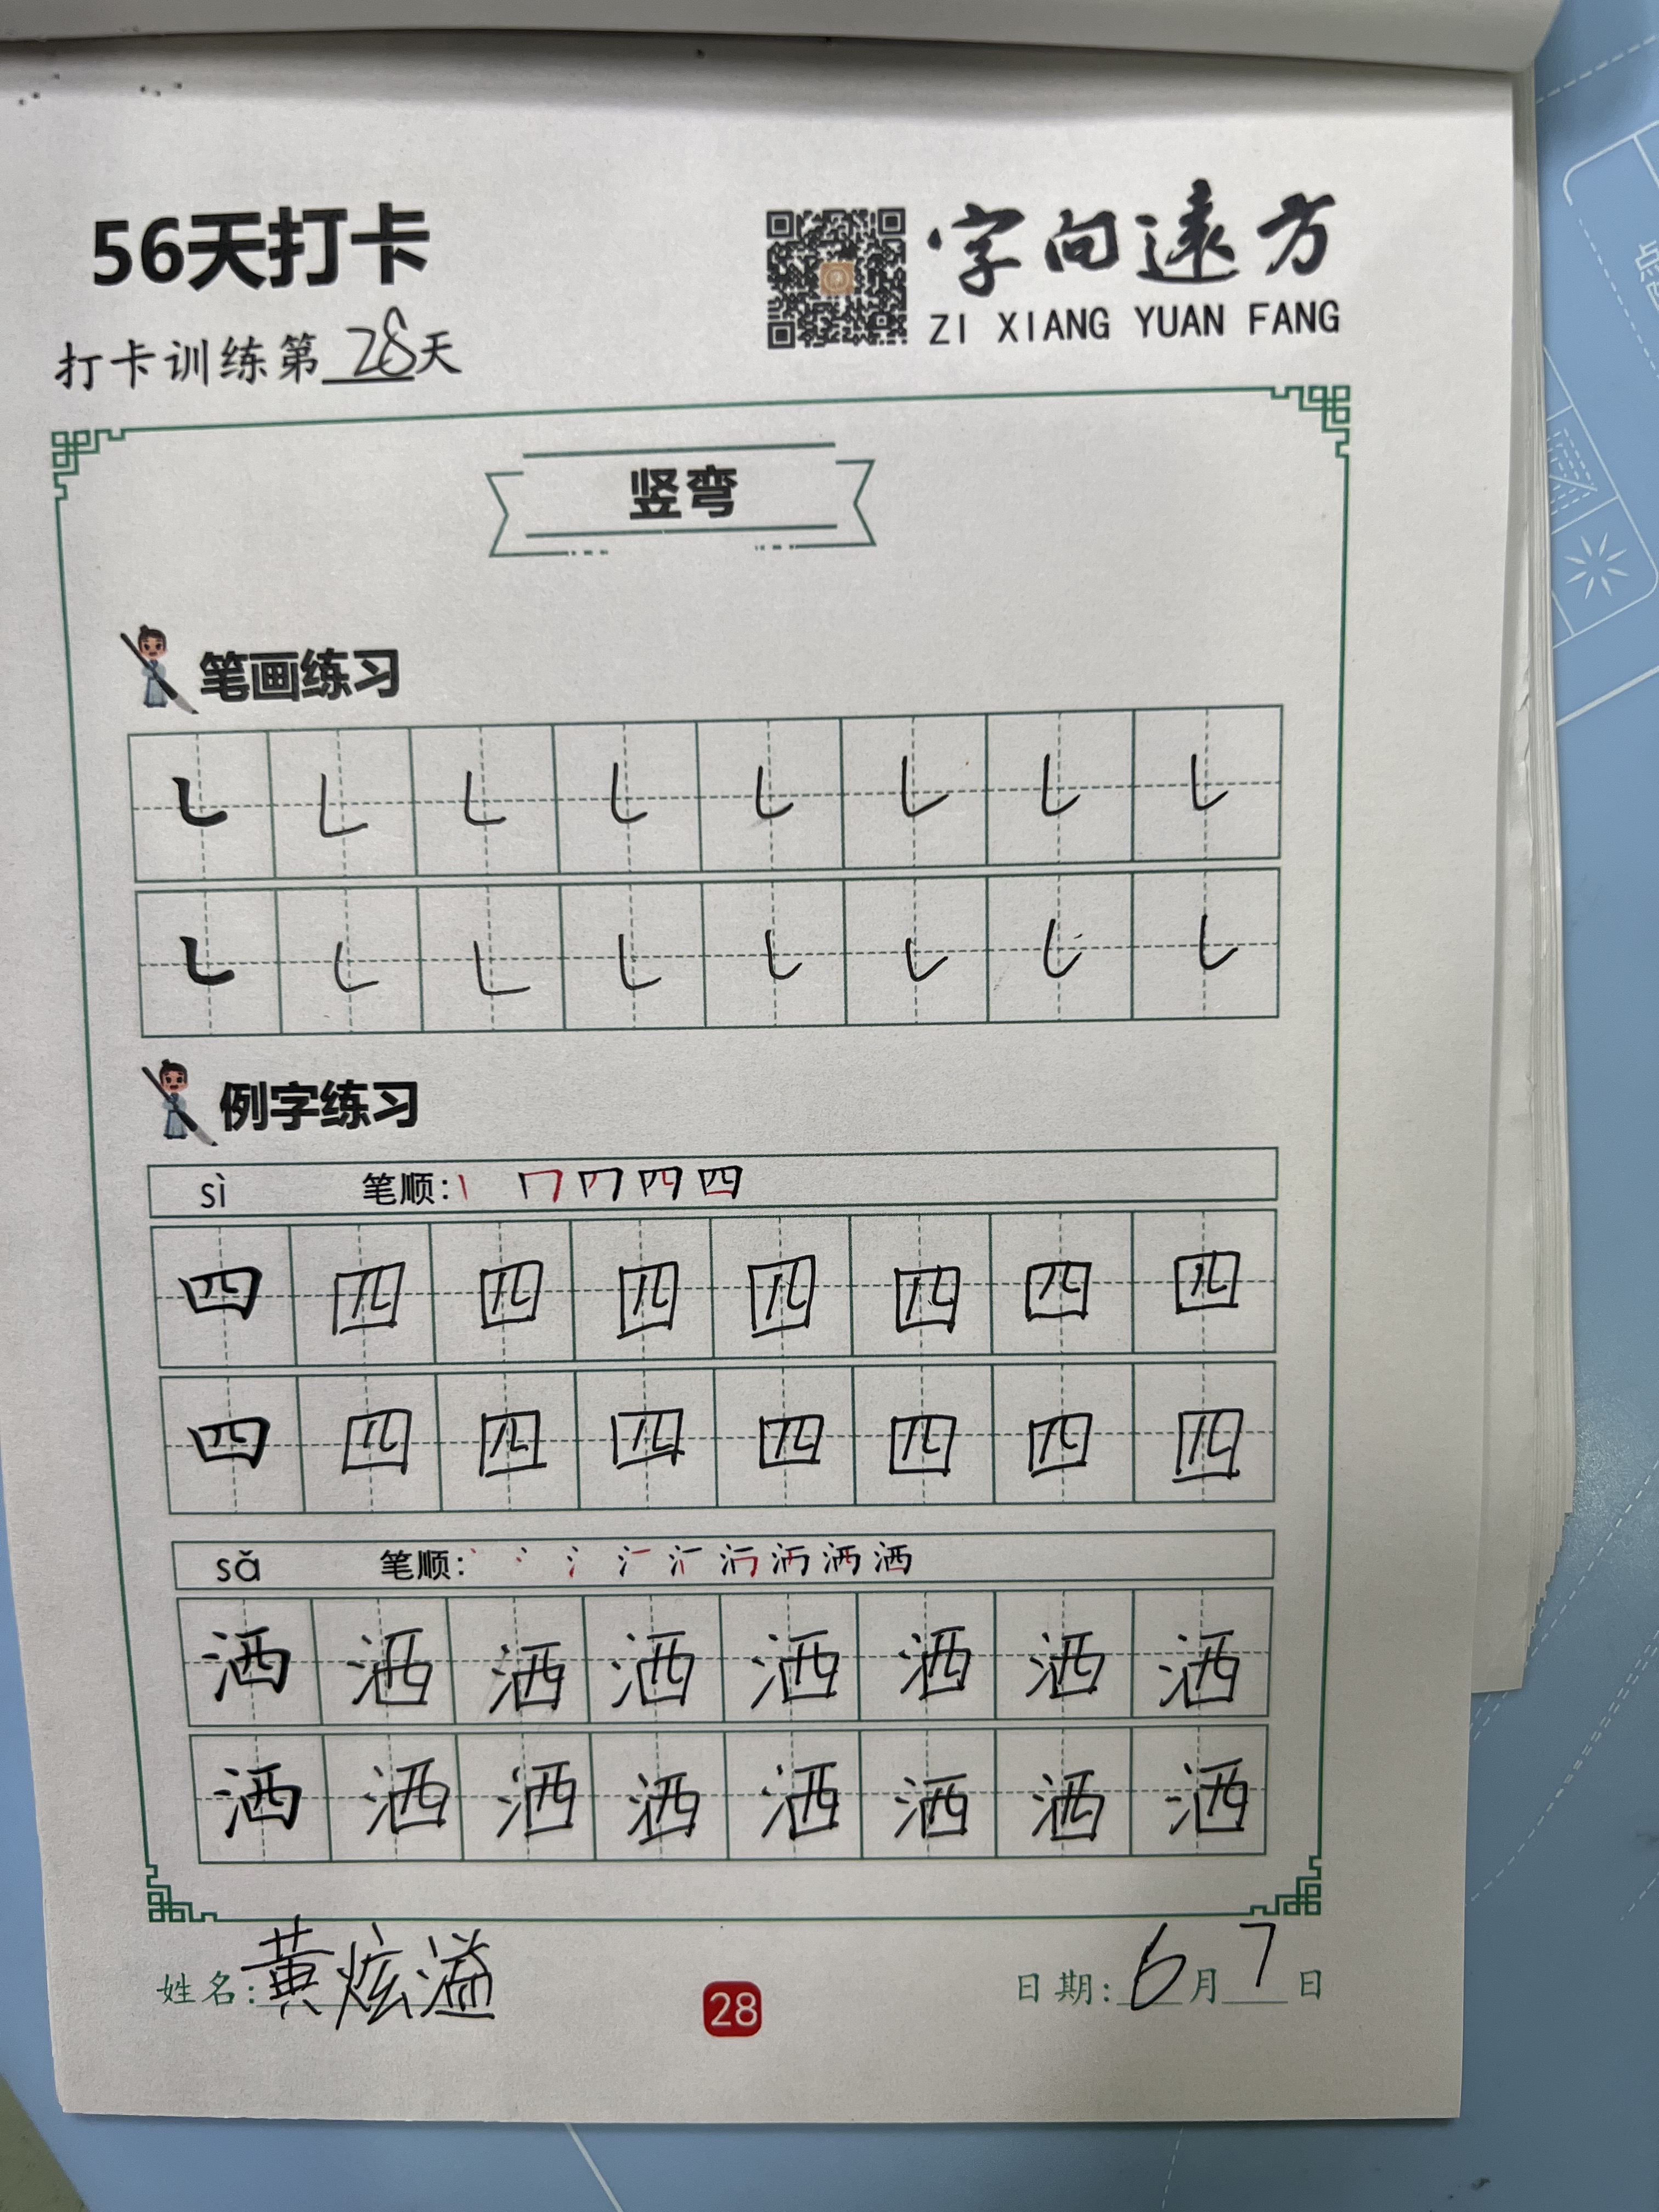 56天打卡
字向遠方
ZI XIANG YUAN FANG
打卡训练第28天
竖弯
笔画练习
㇄ ㇄ ㇄ ㇄ ㇄ ㇄ ㇄ ㇄
㇄ ㇄ ㇄ ㇄ ㇄ ㇄ ㇄ ㇄
例字练习
sì 笔顺:
四 四 四 四 四 四 四 四
四 四 四 四 四 四 四 四
sǎ 笔顺:
洒 洒 洒 洒 洒 洒 洒 洒
洒 洒 洒 洒 洒 洒 洒 洒
姓名:黄炫溢
28
日期:6月7日